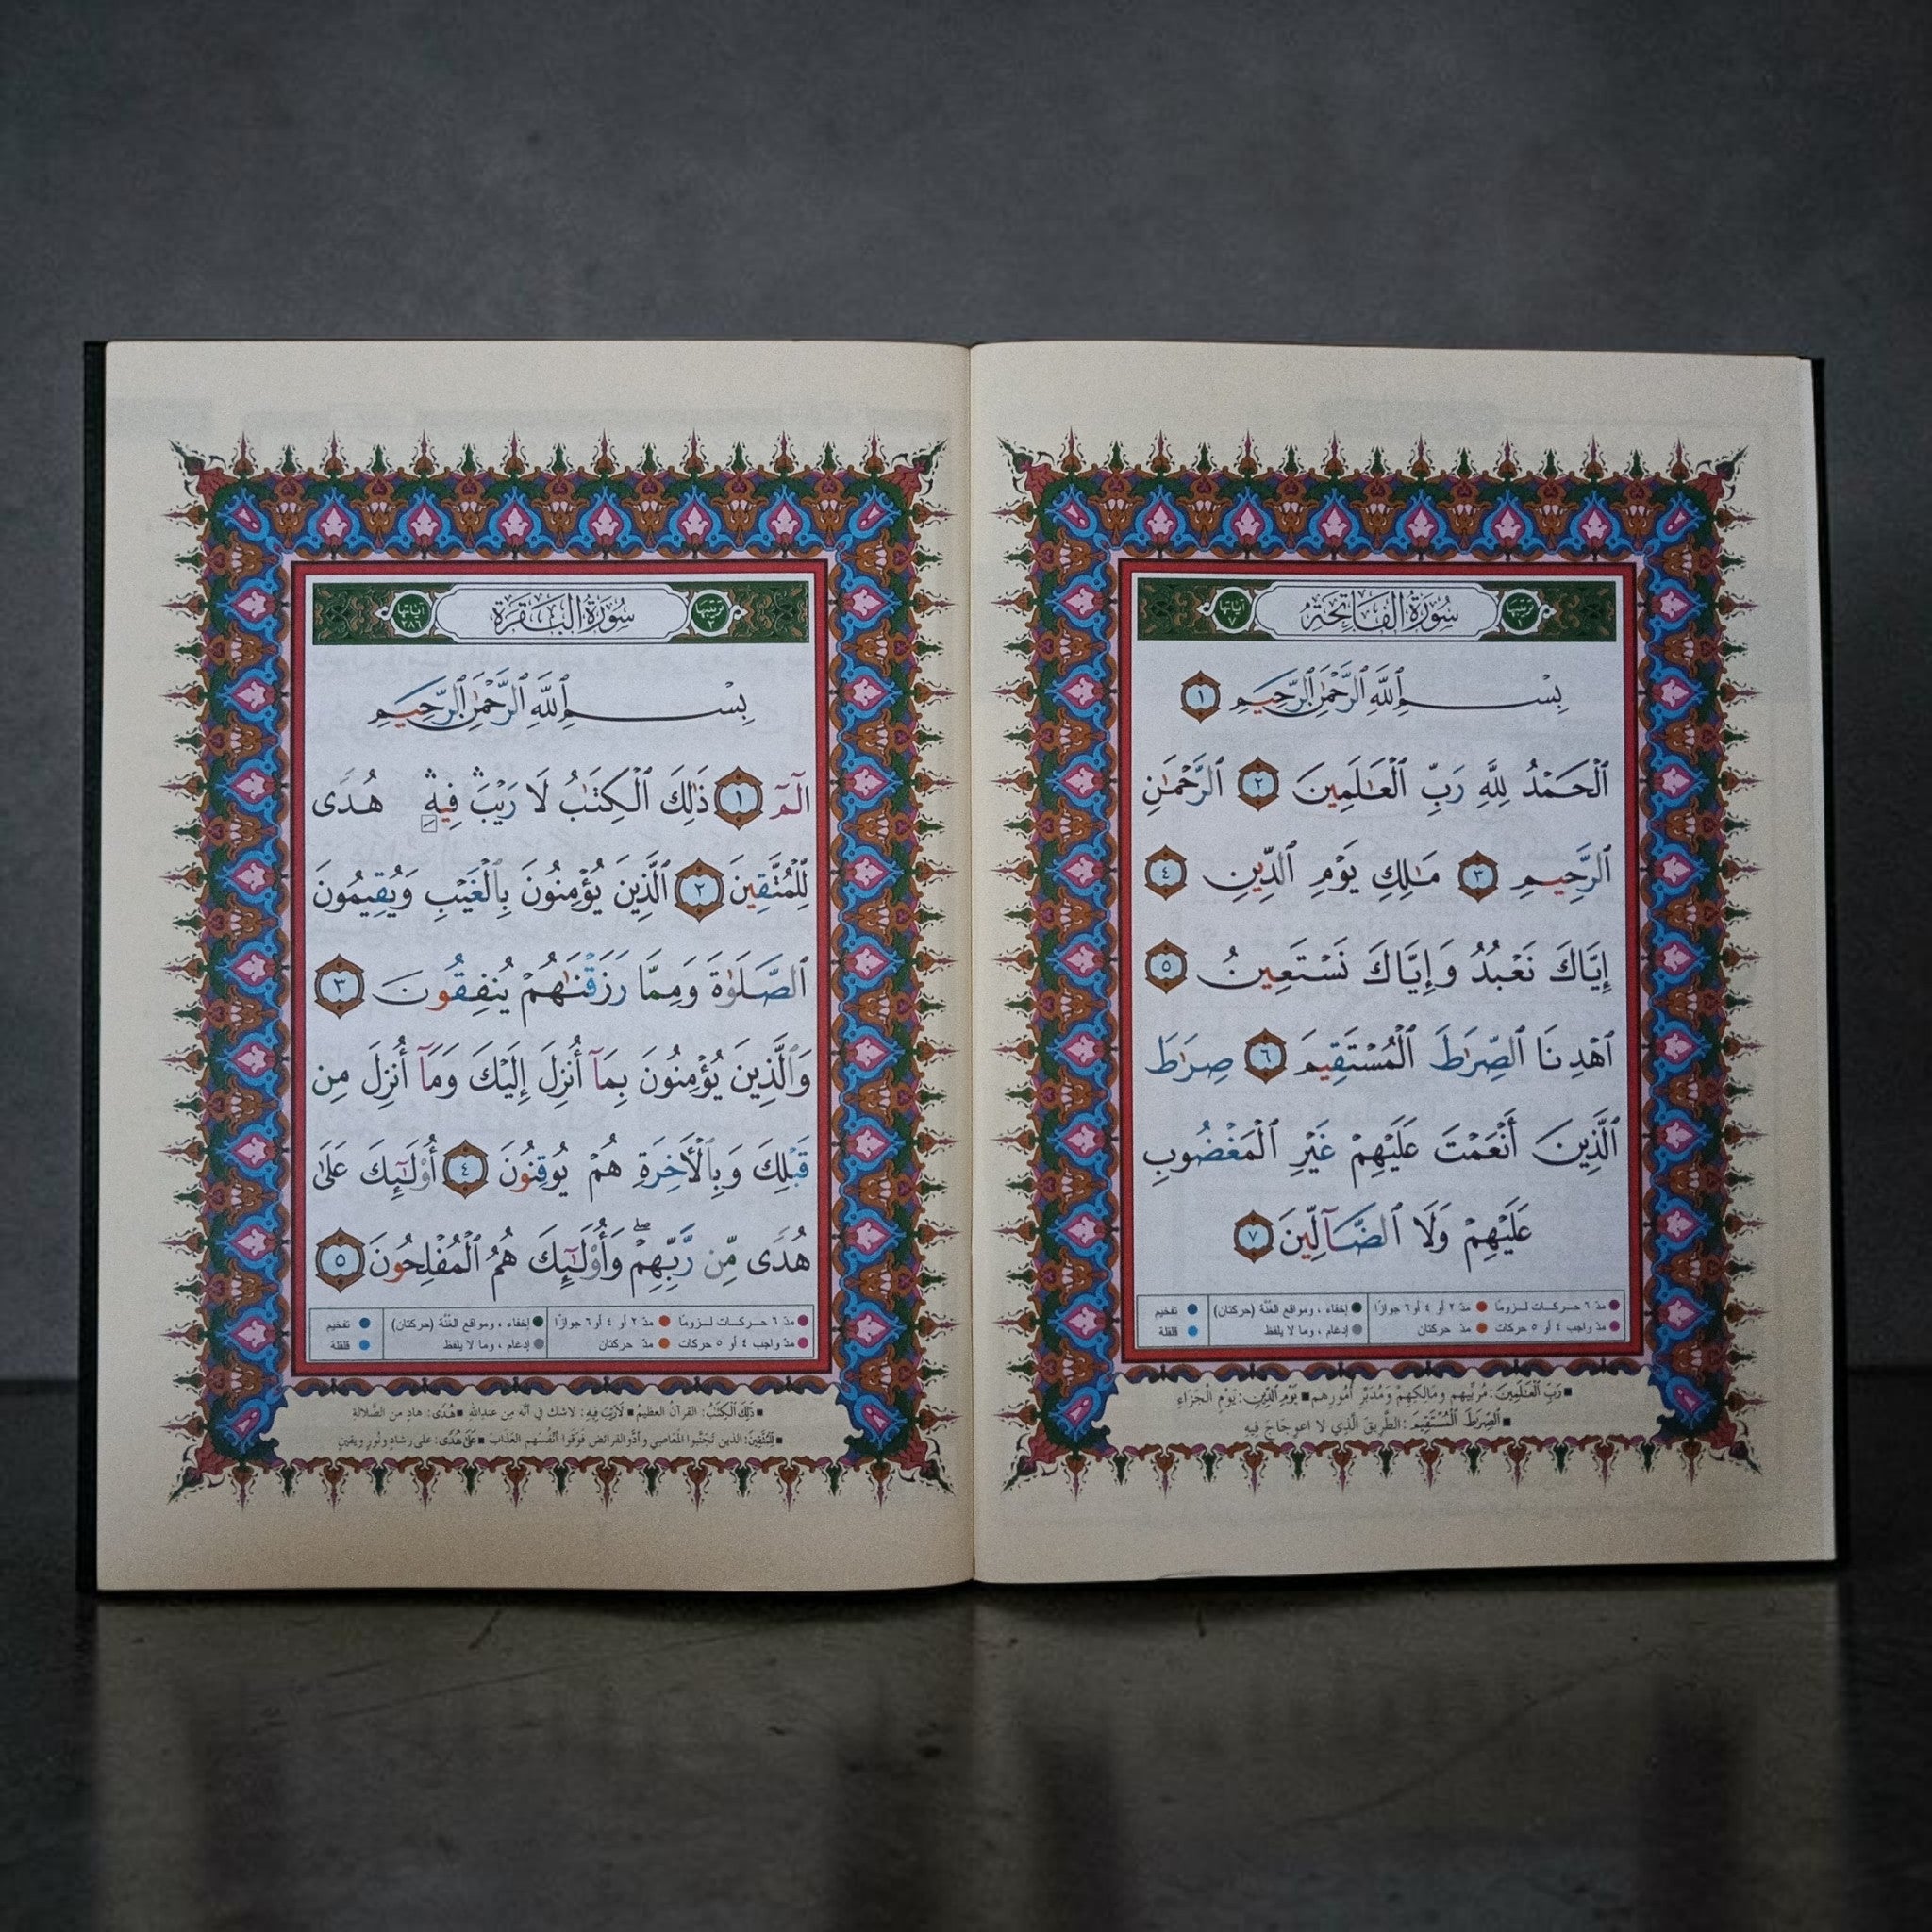 ترتيبها ١ سُورَةُ الْفَاتِحَةِ آياتها ٧
بِسْمِ ٱللَّهِ ٱلرَّحْمَٰنِ ٱلرَّحِيمِ ١
ٱلْحَمْدُ لِلَّهِ رَبِّ ٱلْعَٰلَمِينَ ٢ ٱلرَّحْمَٰنِ
ٱلرَّحِيمِ ٣ مَٰلِكِ يَوْمِ ٱلدِّينِ ٤
إِيَّاكَ نَعْبُدُ وَإِيَّاكَ نَسْتَعِينُ ٥
ٱهْدِنَا ٱلصِّرَٰطَ ٱلْمُسْتَقِيمَ ٦ صِرَٰطَ
ٱلَّذِينَ أَنْعَمْتَ عَلَيْهِمْ غَيْرِ ٱلْمَغْضُوبِ
عَلَيْهِمْ وَلَا ٱلضَّآلِّينَ ٧
مدّ ٦ حركات لزومًا مدّ ٢ أو ٤ أو ٦ جوازًا إخفاء ، ومواقع الغنّة (حركتان) تفخيم
مدّ واجب ٤ أو ٥ حركات مدّ حركتان إدغام ، وما لا يلفظ قلقلة
رَبِّ ٱلْعَٰلَمِينَ: مُرَبِّيهم ومَالِكِهِمْ وَمُدَبِّرِ أُمُورِهم يَوْمِ ٱلدِّينِ: يَوْمِ الْجَزَاءِ
ٱلصِّرَٰطَ ٱلْمُسْتَقِيمَ: الطَّرِيقَ الَّذِي لا اعْوِجَاجَ فِيهِ
ترتيبها ٢ سُورَةُ الْبَقَرَةِ آياتها ٢٨٦
بِسْمِ ٱللَّهِ ٱلرَّحْمَٰنِ ٱلرَّحِيمِ
الٓمٓ ١ ذَٰلِكَ ٱلْكِتَٰبُ لَا رَيْبَۛ فِيهِۛ هُدًى
لِّلْمُتَّقِينَ ٢ ٱلَّذِينَ يُؤْمِنُونَ بِٱلْغَيْبِ وَيُقِيمُونَ
ٱلصَّلَوٰةَ وَمِمَّا رَزَقْنَٰهُمْ يُنفِقُونَ ٣
وَٱلَّذِينَ يُؤْمِنُونَ بِمَآ أُنزِلَ إِلَيْكَ وَمَآ أُنزِلَ مِن
قَبْلِكَ وَبِٱلْأَخِرَةِ هُمْ يُوقِنُونَ ٤ أُو۟لَٰٓئِكَ عَلَىٰ
هُدًى مِّن رَّبِّهِمْۖ وَأُو۟لَٰٓئِكَ هُمُ ٱلْمُفْلِحُونَ ٥
مدّ ٦ حركات لزومًا مدّ ٢ أو ٤ أو ٦ جوازًا إخفاء ، ومواقع الغنّة (حركتان) تفخيم
مدّ واجب ٤ أو ٥ حركات مدّ حركتان إدغام ، وما لا يلفظ قلقلة
ذَٰلِكَ ٱلْكِتَٰبُ: القرآن العظيمُ لَا رَيْبَ فِيهِ: لاشك في أنّه مِن عندِاللهِ هُدًى: هادٍ من الضَّلالةِ
لِّلْمُتَّقِينَ: الذين تَجَنَّبوا المَعاصِي وأدَّوالفرائض فَوَقَوا أنْفُسَهم العَذَابَ عَلَىٰ هُدًى: على رشادٍ ونُورٍ ويقينٍ